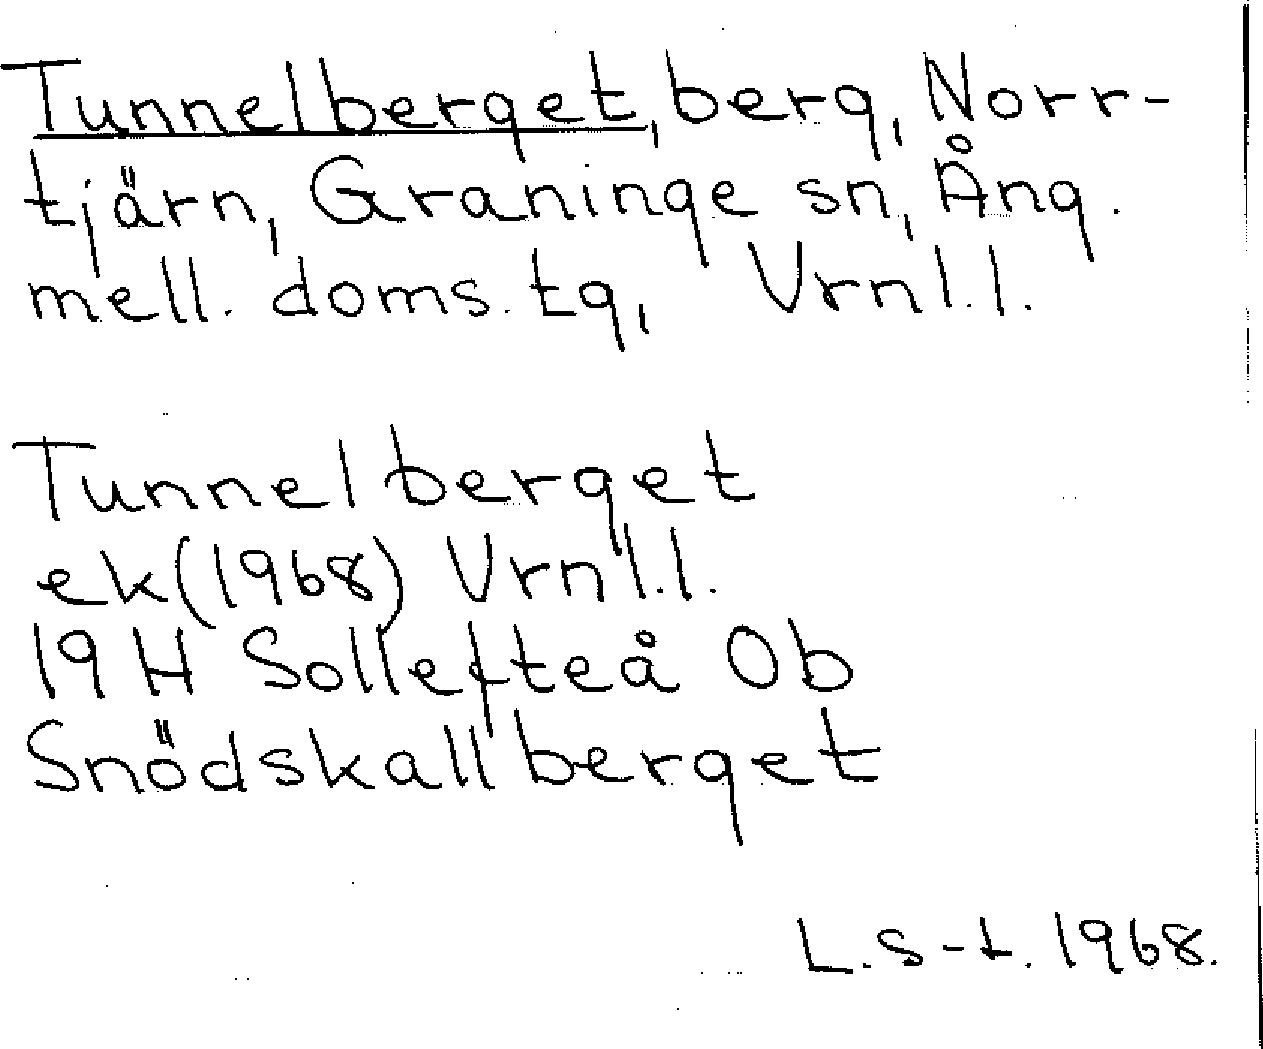 Tunnelberget, berg, Norr-
tjärn, Graninge sn, Ång.
mell. doms. tg, Vrnl.l.
Tunnelberget
ek(1968) Vrnl.l.
19 H Sollefteå Ob
Snödskallberget
L.S-t. 1968.